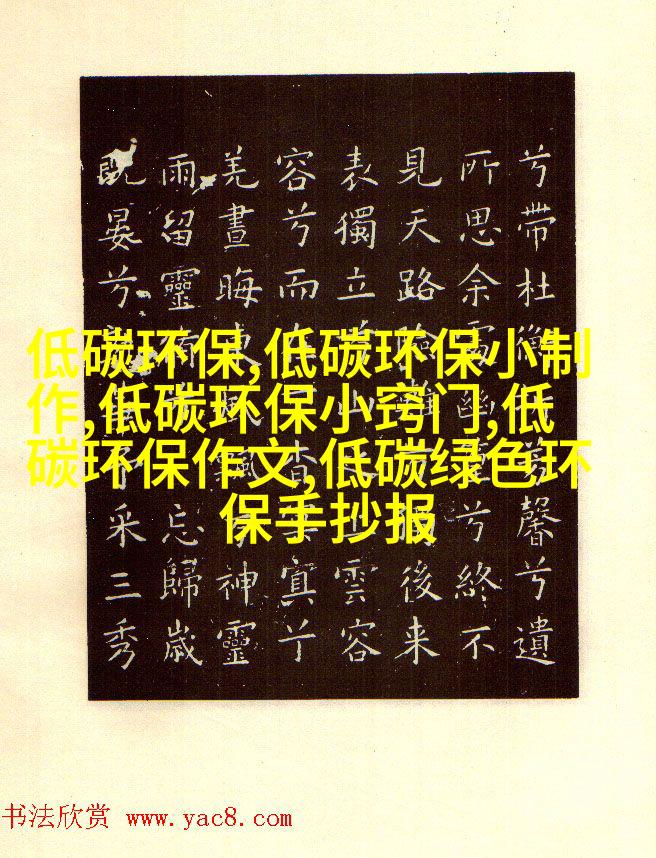 低碳环保,低碳环保小制
作,低碳环保小窍门,低
碳环保作文,低碳绿色环
保手抄报
兮帶杜衡芳馨兮遺
所思余處幽篁兮終不
見天路險難後來
表獨立山雲容
容兮而杳冥兮
羌晝晦東風飄神靈
雨留靈忘歸歲
既晏兮采三秀
书法欣赏 www.yac8.com